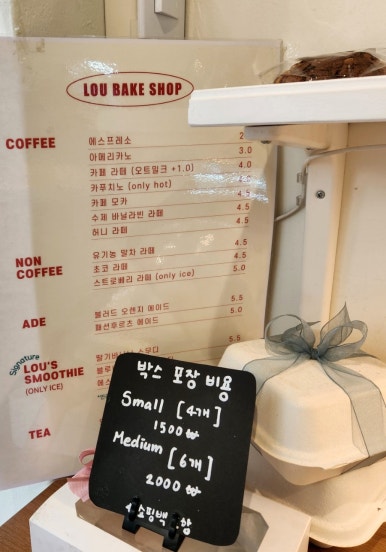 LOU BAKE SHOP
COFFEE
에스프레소
아메리카노 3.0
카페 라떼 (오트밀크 +1.0) 4.0
카푸치노 (only hot)
카페 모카 4.5
수제 바닐라빈 라떼 4.5
허니 라떼 4.5
NON
COFFEE
유기농 말차 라떼 4.5
초코 라떼 4.5
스트로베리 라떼 (only ice) 5.0
ADE
블러드 오렌지 에이드 5.5
패션후르츠 에이드 5.0
Signature
LOU'S
SMOOTHIE
(ONLY ICE)
TEA
박스 포장 비용
Small [4개]
1500₩
Medium [6개]
2000₩
쇼핑백